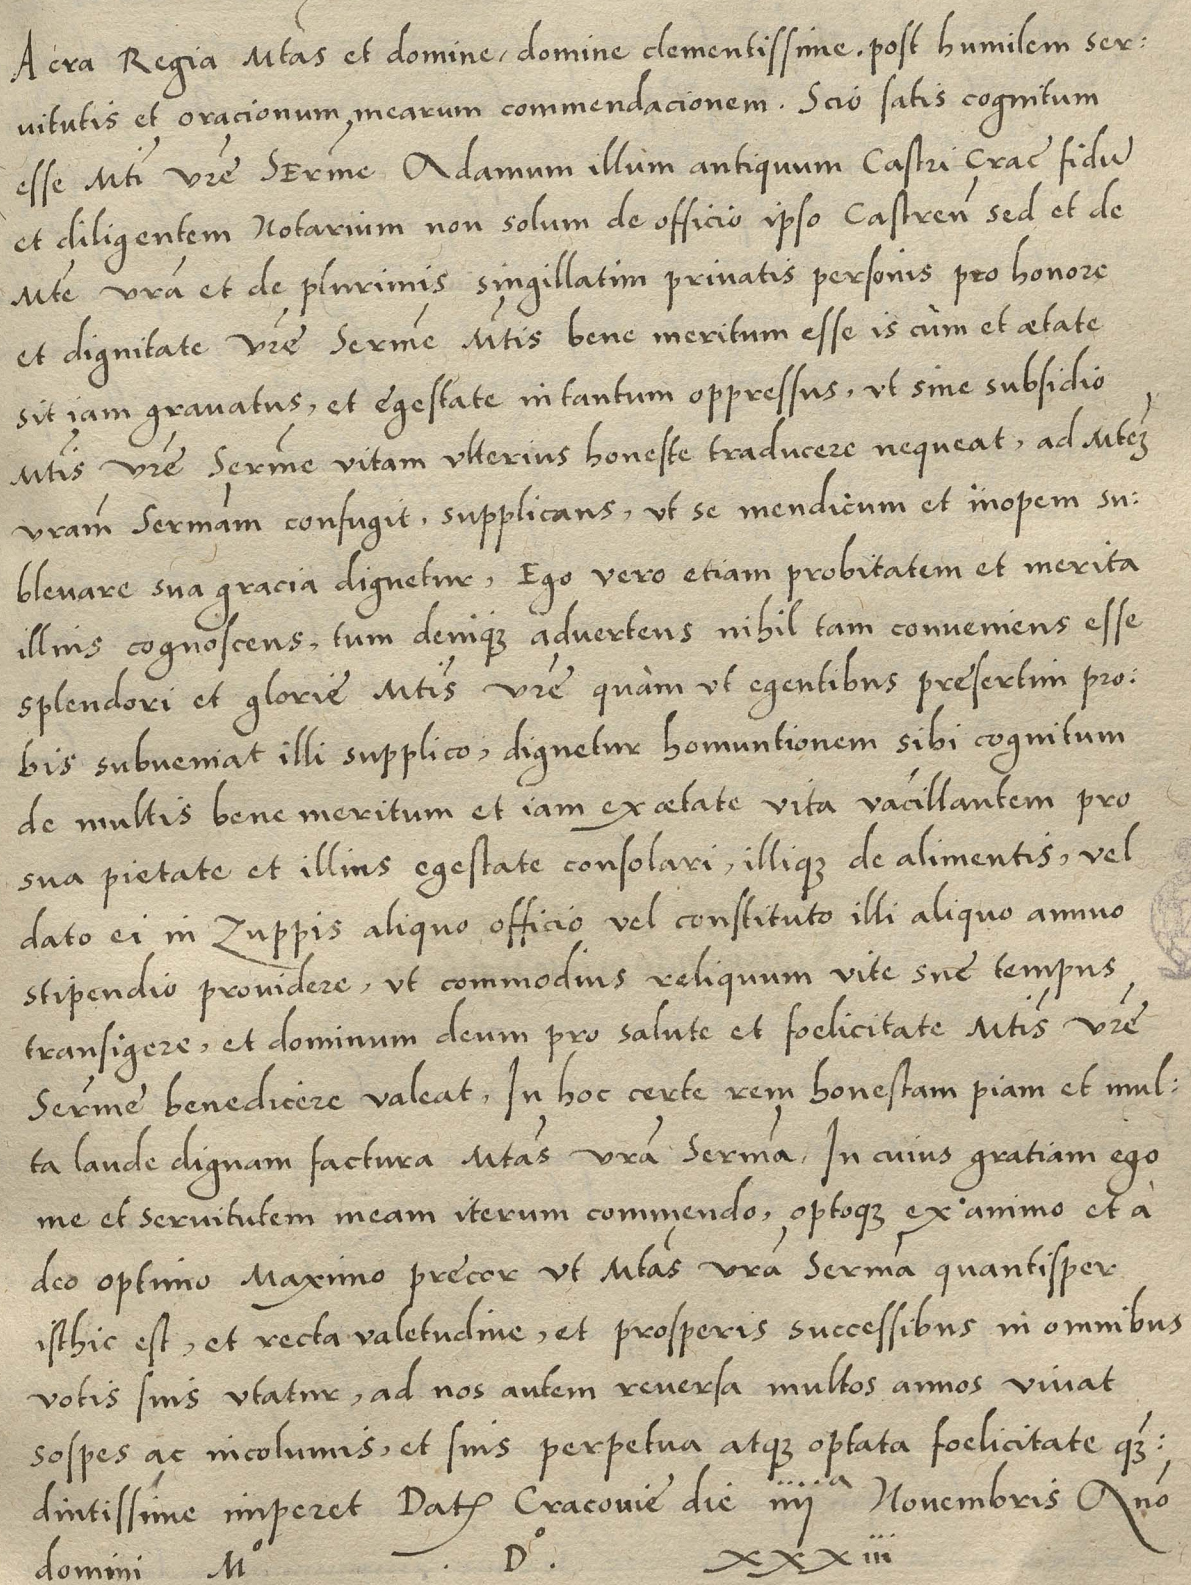 Acra Regia Mtas et domine, domine clementissime. post humilem ser:
uitutis et oracionum, mearum commendacionem. Scio satis cognitum
esse Mti vre Serme Adamum illum antiquum Castri Crac fidu
et diligentem Notarium non solum de officio ipso Castren sed et de
Mte vra et de plurimis singillatim priuatis personis pro honore
et dignitate vre Serme Mtis bene meritum esse is cùm et ætate
sit iam grauatus, et egestate in tantum oppressus, vt sine subsidio
Mtis vre Serme vitam vlterius honeste traducere nequeat, ad Mteꝫ
vram Sermam confugit, supplicans, vt se mendicum et inopem su:
bleuare sua gracia dignetur, Ego vero etiam probitatem et merita
illius cognoscens, tum deniqꝫ aduertens nihil tam conueniens esse
splendori et glorię Mtis vre quàm vt egentibus presertim pro:
bis subueniat illi supplico, dignetur homuntionem sibi cognitum
de multis bene meritum et iam ex ætate vita vacillantem pro
sua pietate et illius egestate consolari, illiqꝫ de alimentis, vel
dato ei in Zuppis aliquo officio vel constituto illi aliquo annuo
stipendio prouidere, vt commodius reliquum vite suę tempus
transigere, et dominum deum pro salute et foelicitate Mtis vre
Serme benedicere valeat, In hoc certe rem honestam piam et mul:
ta laude dignam factura Mtas vra Serma. In cuius gratiam ego
me et seruitutem meam iterum commendo, optoqꝫ ex animo et à
deo optimo Maximo precor vt Mtas vra Serma quantisper
isthic est, et recta valetudine, et prosperis successibus in omnibus
votis suis vtatur, ad nos autem reuersa multos annos viuat
sospes ac incolumis, et suis perpetua atqꝫ optata foelicitate qꝫ:
diutissime imperet Dat Cracouię die iiij a Novembris Ano
domini Mo . Do . xxxiii